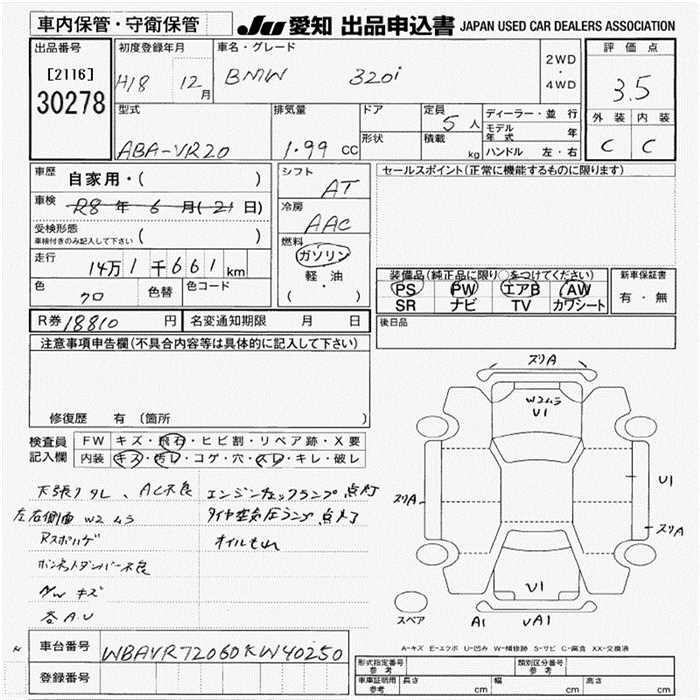 車内保管・守衛保管
JU 愛知 出品申込書 JAPAN USED CAR DEALERS ASSOCIATION
出品番号
[2116]
30278
初度登録年月
H18 12月
車名・グレード
BMW 320i
2WD
・
4WD
評価点
3.5
外装 内装
C C
型式
ABA-VR20
排気量
1.99 CC
ドア
形状
定員
5人
積載
kg
ディーラー・並行
モデル年式 年
ハンドル 左・右
車歴 自家用・( )
車検 R8年6月(21日)
受検形態
車検付きのみ記入して下さい ( )
走行
14万1千661km
色
クロ
色替
色コード
シフト
AT
冷房
AAC
燃料
ガソリン
軽・油
( ・ )
セールスポイント(正常に機能するものに限ります)
装備品(純正品に限り○をつけてください)
PS PW エアB AW
SR ナビ TV カワシート
新車保証書
有・無
R券 18810 円
名変通知期限 月 日
後日品
注意事項申告欄(不具合内容等は具体的に記入して下さい)
修復歴 有(箇所 )
検査員記入欄
FW キズ・飛石・ヒビ割・リペア跡・X要
内装 キズ・汚レ・コゲ・穴・スレ・キレ・破レ
天張りタレ、AC不良
左右側面 W2ムラ
Rスポハゲ
ボンネットダンパー不良
AWキズ
各A.U
エンジンチェックランプ点灯
タイヤ空気圧ランプ点灯
オイルもれ
ズリA
W2ムラ
U1
ズリA
U1
ズリA
U1
スペア
A1
UA1
A-キズ E-エクボ U-凹み W-補修跡 S-サビ C-腐食 XX-交換済
車台番号
WBAVR72060KW40250
登録番号
形式指定番号
参考
類別区分番号
参考
車庫証明用
参考
長さ cm 幅 cm 高さ cm